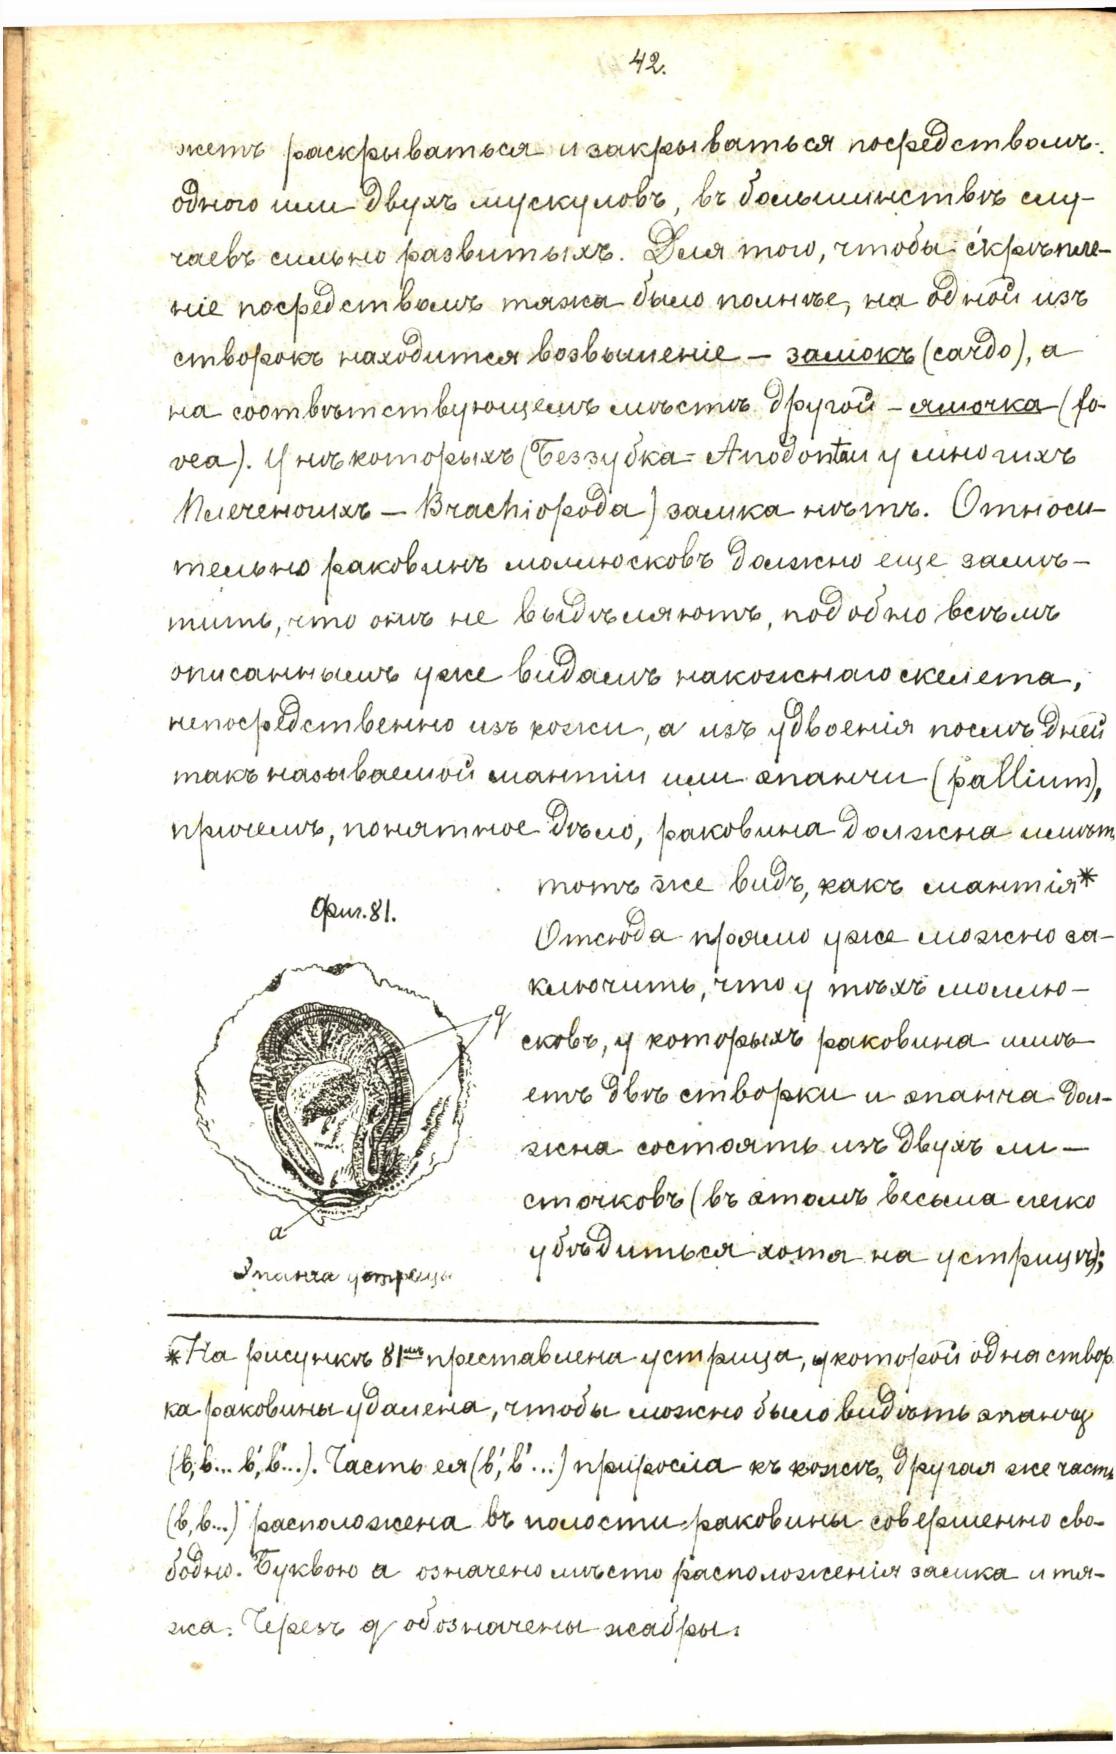 42.
жетъ раскрываться и закрываться посредствомъ
одного или двухъ мускуловъ, въ большинствѣ слу-
чаевъ сильно развитыхъ. Для того, чтобы скрѣпле-
ніе посредствомъ тяжа было полнѣе, на одной изъ
створокъ находится возвышеніе – замокъ (cardo), а
на соотвѣтствующемъ мѣстѣ другой – ямочка (fo-
vea). У нѣкоторыхъ (Беззубка = Anodonta и у многихъ
Плеченогихъ – Brachiopoda) замка нѣтъ. Относи-
тельно раковинъ моллюсковъ должно еще замѣ-
тить, что онѣ не выдѣляютъ, подобно всѣмъ
описаннымъ уже видамъ накожнаго скелета,
непосредственно изъ кожи, а изъ удвоенія послѣдней
такъ называемой мантіи или эпанчи (pallium),
причемъ, понятное дѣло, раковина должна имѣть
тотъ же видъ, какъ мантія*
Отсюда прямо уже можно за-
ключить, что у тѣхъ моллю-
сковъ, у которыхъ раковина имѣ-
етъ двѣ створки и эпанча дол-
жна состоять изъ двухъ ли-
сточковъ (въ этомъ весьма легко
убѣдиться хотя на устрицѣ);
Фиг. 81.
q
a
Эпанча устрицы
*На рисункѣ 81мъ преставлена устрица, у которой одна створ
ка раковины удалена, чтобы можно было видѣть эпанчу
(b, b... b', b'...). Часть ея (b', b'...) приросла къ кожѣ, другая же часть
(b, b...) расположена въ полости раковины совершенно сво-
бодно. Буквою а означено мѣсто расположенія замка и тя-
жа. Черезъ q обозначены жабры.